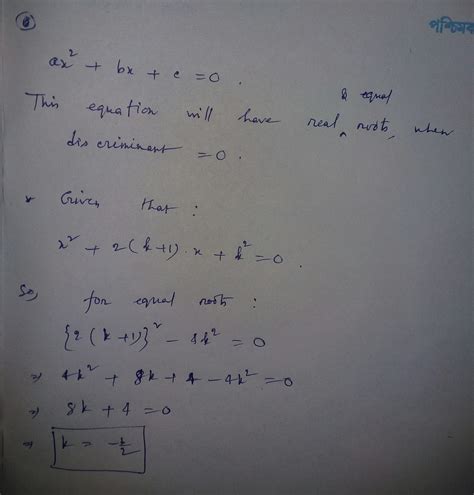 পশ্চিমব
①
ax² + bx + c = 0 .
This equation will have real & equal roots, when
discriminant = 0 .
* Given that :
x² + 2(k+1).x + k² = 0
So, for equal roots :
{2(k+1)}² - 4k² = 0
⇒ 4k² + 8k + 4 - 4k² = 0
⇒ 8k + 4 = 0
⇒ k = -k/2